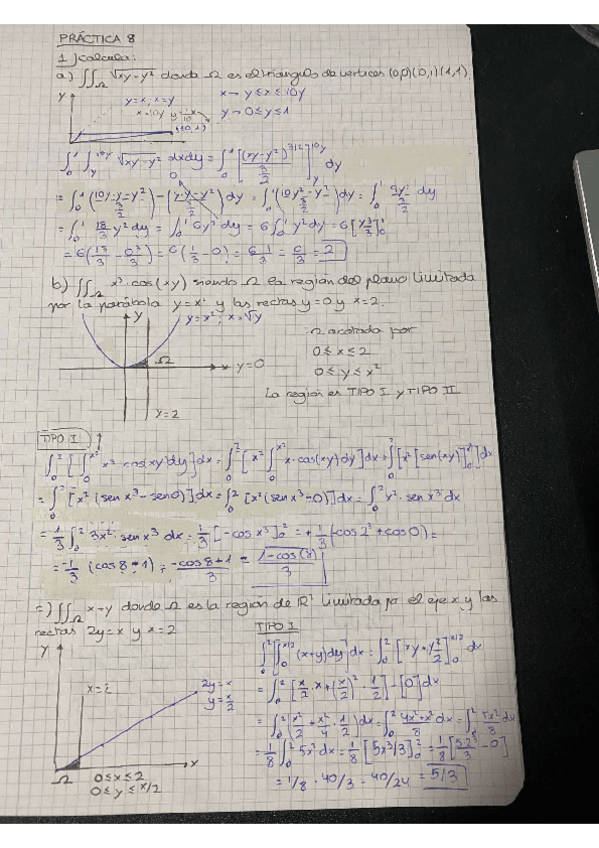 PRÁCTICA 8
1) Calcula:
a) ∬∬_Ω √xy-y² donde Ω es el triángulo de vertices (0,0)(0,1)(1,1).
y
y=x; x=y
x=10y y=1/10 x
(10,1)
x → y ≤ x ≤ 10y
y → 0 ≤ y ≤ 1
∫₀¹ ∫_y^10y √xy-y² dxdy = ∫₀¹ [(xy-y²)^3/2 / 3/2]_y^10y dy
= ∫₀¹ 18/3 y² dy = ∫₀¹ 6y² dy = 6∫₀¹ y² dy = 6[y³/3]₀¹
= 6(1³/3 - 0³/3) = 6(1/3 - 0) = 6 1/3 = 6/3 = 2
b) ∬_Ω x³·cos(xy) siendo Ω la región del plano limitada
por la parábola y=x² y las rectas y=0 y x=2.
y
y=x²; x=√y
Ω
x
y=0
y=2
Ω acotada por
0 ≤ x ≤ 2
0 ≤ y ≤ x²
La región es TIPO I y TIPO II
TIPO I
∫₀² [∫₀^x² x³·cos(xy)dy]dx = ∫₀² [x² ∫₀^x² x·cos(xy)dy]dx = ∫₀² [x² [sen(xy)]₀^x²]dx
= ∫₀² [x² (sen x³ - sen 0)]dx = ∫₀² [x² (sen x³ - 0)]dx = ∫₀² x²·sen x³ dx
= 1/3 ∫₀² 3x²·sen x³ dx = 1/3 [-cos x³]₀² = + 1/3 (-cos 2³ + cos 0) =
= -1/3 (cos 8 - 1) = -cos 8 + 1 / 3 = 1-cos(8) / 3
c) ∬_Ω x+y donde Ω es la región de R² limitada por el eje x y las
rectas 2y=x y x=2
y
x=2
2y=x
y=x/2
x
Ω
0 ≤ x ≤ 2
0 ≤ y ≤ x/2
TIPO I
∫₀² [∫₀^x/2 (x+y)dy]dx = ∫₀² [xy + y²/2]₀^x/2 dx
= ∫₀² [x/2 · x + (x/2)² · 1/2] - [0]dx
= ∫₀² (x²/2 + x²/4 · 1/2)dx = ∫₀² 4x²+x²/8 dx = ∫₀² 5x²/8 dx
= 1/8 ∫₀² 5x² dx = 1/8 [5x³/3]₀² = 1/8 [5·2³/3 - 0]
= 1/8 · 40/3 = 40/24 = 5/3